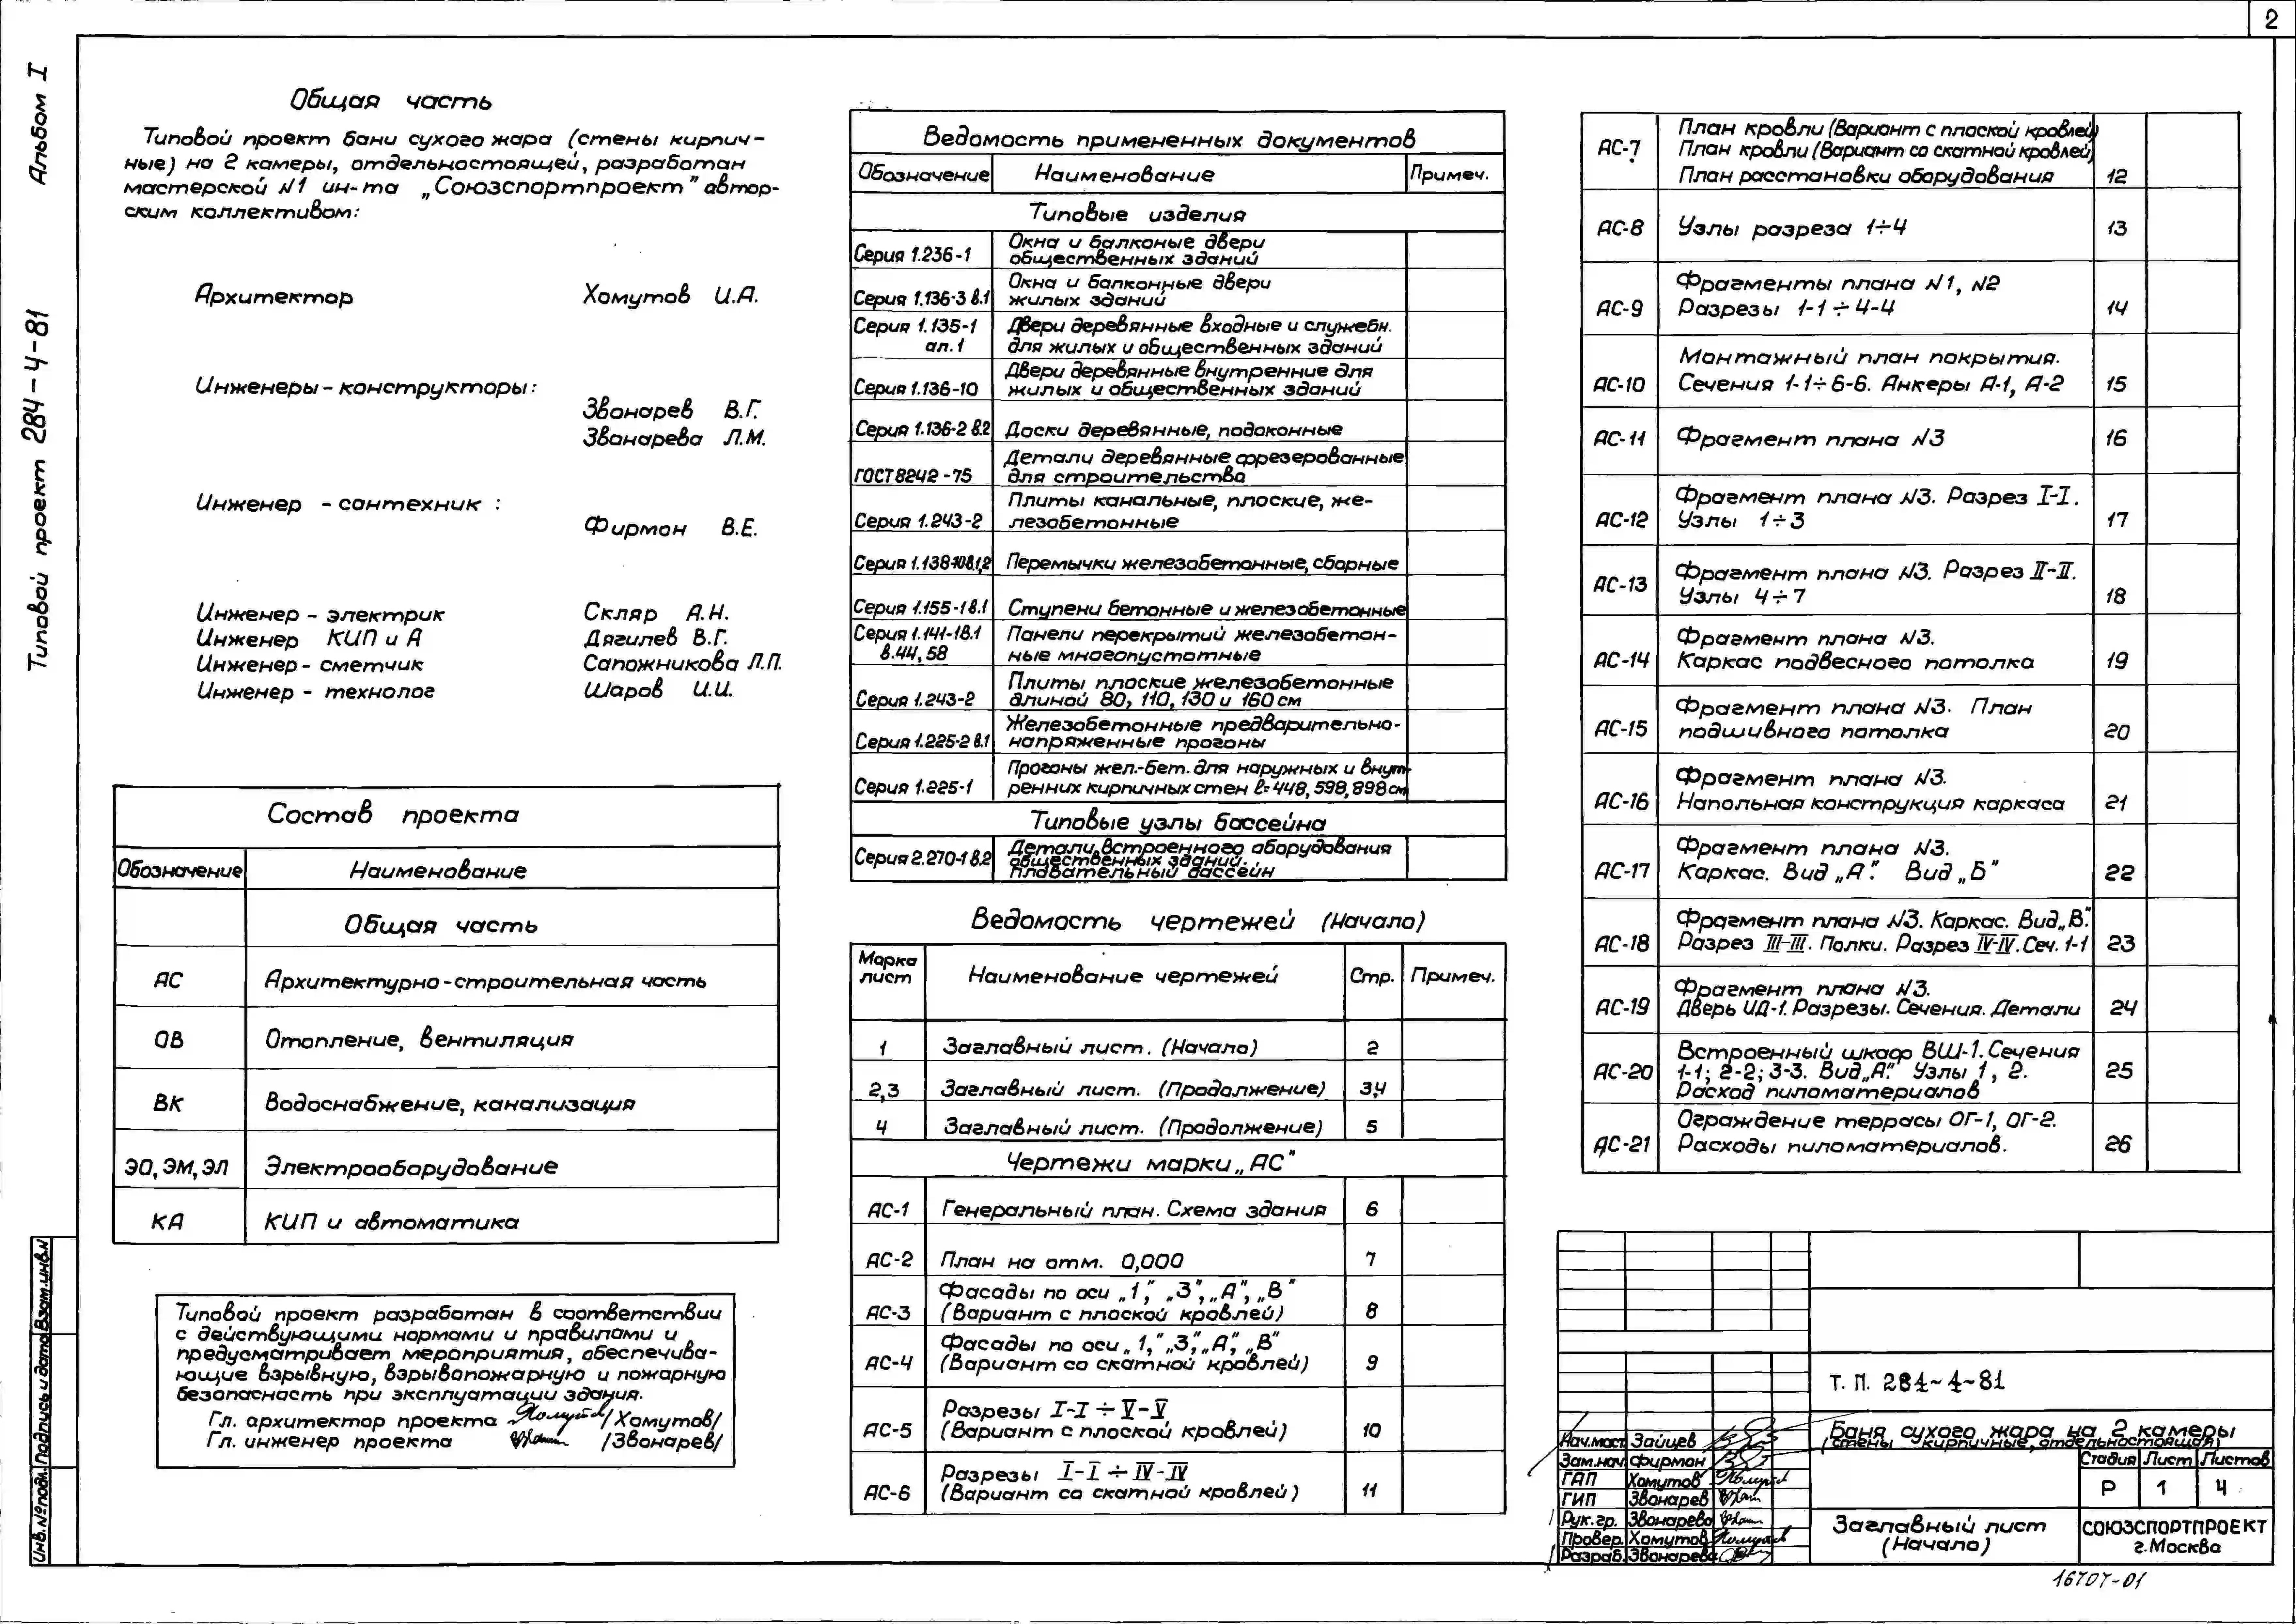 2
Альбом I
Типовой проект 284-4-81
Общая часть
Типовой проект бани сухого жара (стены кирпич-
ные) на 2 камеры, отдельностоящей, разработан
мастерской №1 ин-та „Союзспортпроект" автор-
ским коллективом:
Архитектор Хомутов И.А.
Инженеры-конструкторы:
Звонарев В.Г.
Звонарева Л.М.
Инженер - сантехник :
Фирман В.Е.
Инженер - электрик Скляр А.Н.
Инженер КИП и А Дягилев В.Г.
Инженер - сметчик Сапожникова Л.П.
Инженер - технолог Шаров И.И.
Состав проекта
Обозначение Наименование
Общая часть
АС Архитектурно-строительная часть
ОВ Отопление, вентиляция
ВК Водоснабжение, канализация
ЭО, ЭМ, ЭЛ Электрооборудование
КА КИП и автоматика
Типовой проект разработан в соответствии
с действующими нормами и правилами и
предусматривает мероприятия, обеспечива-
ющие взрывную, взрывопожарную и пожарную
безопасность при эксплуатации здания.
Гл. архитектор проекта /Хомутов/
Гл. инженер проекта /Звонарев/
Ведомость примененных документов
Обозначение Наименование Примеч.
Типовые изделия
Серия 1.236-1 Окна и балконые двери
общественных зданий
Серия 1.136-3 в.1 Окна и балконные двери
жилых зданий
Серия 1.135-1 Двери деревянные входные и служебн.
ал.1 для жилых и общественных зданий
Серия 1.136-10 Двери деревянные внутренние для
жилых и общественных зданий
Серия 1.136-2 в.2 Доски деревянные, подоконные
ГОСТ 8242-75 Детали деревянные фрезерованные
для строительства
Серия 1.243-2 Плиты канальные, плоские, же-
лезобетонные
Серия 1.138-10в.1,2 Перемычки железобетонные, сборные
Серия 1.155-1 в.1 Ступени бетонные и железобетонные
Серия 1.141-1в.1 Панели перекрытий железобетон-
в.44, 58 ные многопустотные
Серия 1.243-2 Плиты плоские железобетонные
длиной 80, 110, 130 и 160 см
Серия 1.225-2 в.1 Железобетонные предварительно-
напряженные прогоны
Серия 1.225-1 Прогоны жел.-бет. для наружных и внут-
ренних кирпичных стен ℓ=448, 598, 898 см
Типовые узлы бассейна
Серия 2.270-1 в.2 Детали встроенного оборудования
общественных зданий.
плавательный бассейн
Ведомость чертежей (Начало)
Марка лист Наименование чертежей Стр. Примеч.
1 Заглавный лист. (Начало) 2
2,3 Заглавный лист. (Продолжение) 3,4
4 Заглавный лист. (Продолжение) 5
Чертежи марки „АС"
АС-1 Генеральный план. Схема здания 6
АС-2 План на отм. 0,000 7
АС-3 Фасады по оси „1", „3", „А", „В"
(Вариант с плоской кровлей) 8
АС-4 Фасады по оси „1", „3", „А", „В"
(Вариант со скатной кровлей) 9
АС-5 Разрезы I-I ÷ V-V
(Вариант с плоской кровлей) 10
АС-6 Разрезы I-I ÷ IV-IV
(Вариант со скатной кровлей) 11
АС-7 План кровли (Вариант с плоской кровлей)
План кровли (Вариант со скатной кровлей)
План расстановки оборудования 12
АС-8 Узлы разреза 1÷4 13
АС-9 Фрагменты плана №1, №2
Разрезы 1-1 ÷ 4-4 14
АС-10 Монтажный план покрытия.
Сечения 1-1÷6-6. Анкеры А-1, А-2 15
АС-11 Фрагмент плана №3 16
АС-12 Фрагмент плана №3. Разрез I-I.
Узлы 1÷3 17
АС-13 Фрагмент плана №3. Разрез II-II.
Узлы 4÷7 18
АС-14 Фрагмент плана №3.
Каркас подвесного потолка 19
АС-15 Фрагмент плана №3. План
подшивного потолка 20
АС-16 Фрагмент плана №3.
Напольная конструкция каркаса 21
АС-17 Фрагмент плана №3.
Каркас. Вид „А". Вид „Б" 22
АС-18 Фрагмент плана №3. Каркас. Вид „В".
Разрез III-III. Полки. Разрез IV-IV. Сеч. 1-1 23
АС-19 Фрагмент плана №3.
Дверь ИД-1. Разрезы. Сечения. Детали 24
АС-20 Встроенный шкаф ВШ-1. Сечения
1-1; 2-2; 3-3. Вид „А". Узлы 1, 2.
Расход пиломатериалов 25
АС-21 Ограждение террасы ОГ-1, ОГ-2.
Расходы пиломатериалов. 26
Т. П. 284-4-81
Баня сухого жара на 2 камеры
(стены кирпичные, отдельностоящая)
Нач.маст. Зайцев
Зам.нач. Фирман
ГАП Хомутов
ГИП Звонарев
Рук.гр. Звонарева
Провер. Хомутов
Разраб. Звонарева
Стадия Лист Листов
Р 1 4
Заглавный лист
(Начало)
СОЮЗСПОРТПРОЕКТ
г.Москва
16707-01
Инв.№подл. Подпись и дата Взам.инв.№